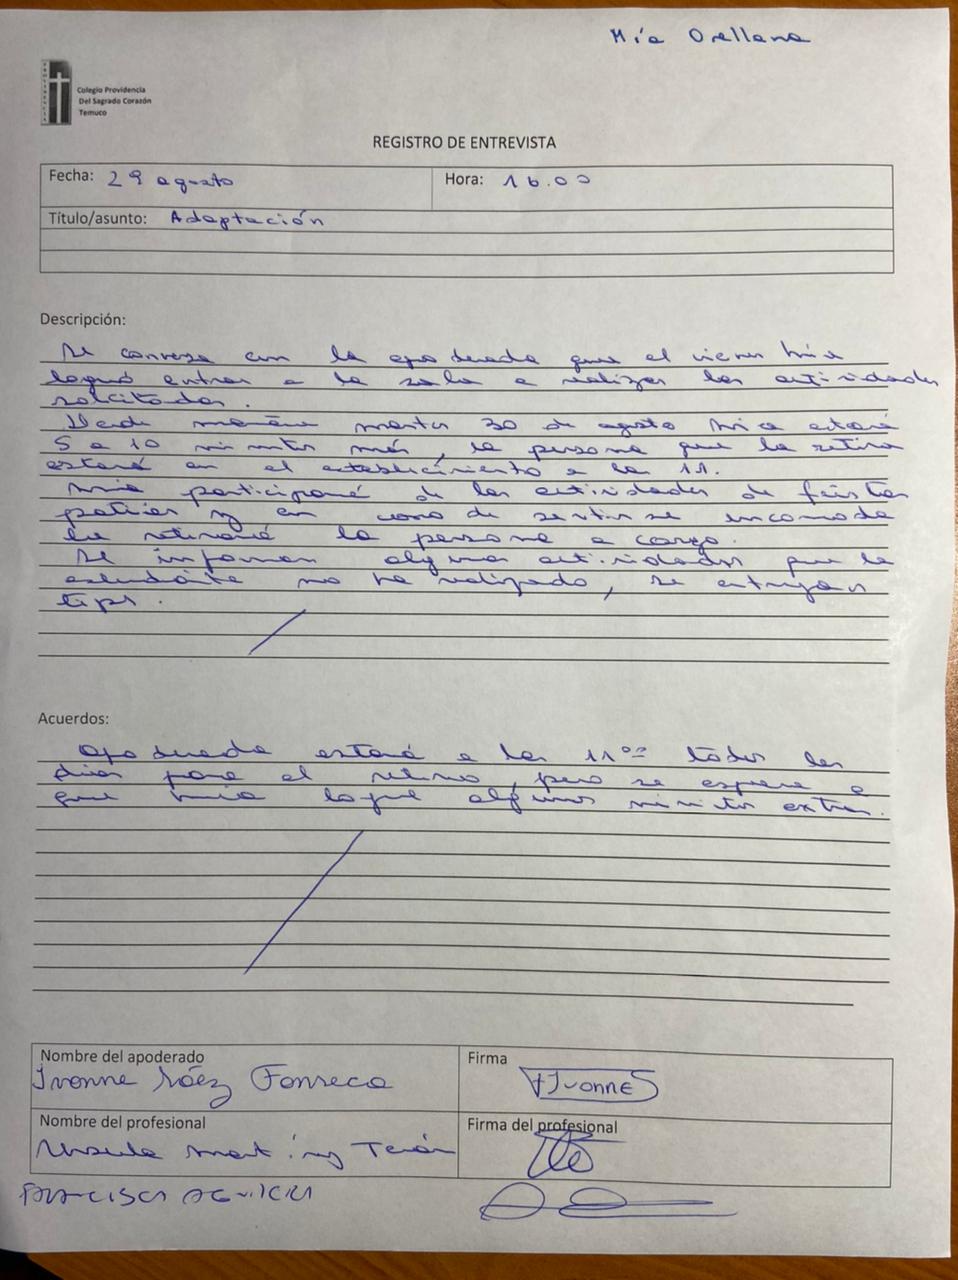 Mía Orellana
PROVIDENCIA
Colegio Providencia
Del Sagrado Corazón
Temuco
REGISTRO DE ENTREVISTA
Fecha: 29 agosto Hora: 16.00
Título/asunto: Adaptación
Descripción:
Se conversa con la apoderada que el viernes Mía
logró entrar a la sala a realizar las actividades
solcitadas.
Desde mañana martes 30 de agosto Mía estará
5 a 10 minutos más, la persona que la retira
estará en el establecimiento a las 11.
Mía participará de las actividades de fiestas
patrias y en caso de sentirse incomoda
la retirará la persona a cargo.
Se informan algunas actividades que la
estudiante no ha realizado, se entregan
tips.
Acuerdos:
Apoderada estará a las 11°° todos los
días para el retiro, pero se espera a
que Mía logre algunos minutos extras.
Nombre del apoderado Firma
Ivonne Sáez Fonseca Ivonne S
Nombre del profesional Firma del profesional
Ursula Martínez Terán
FRANCISCA AGUILERA